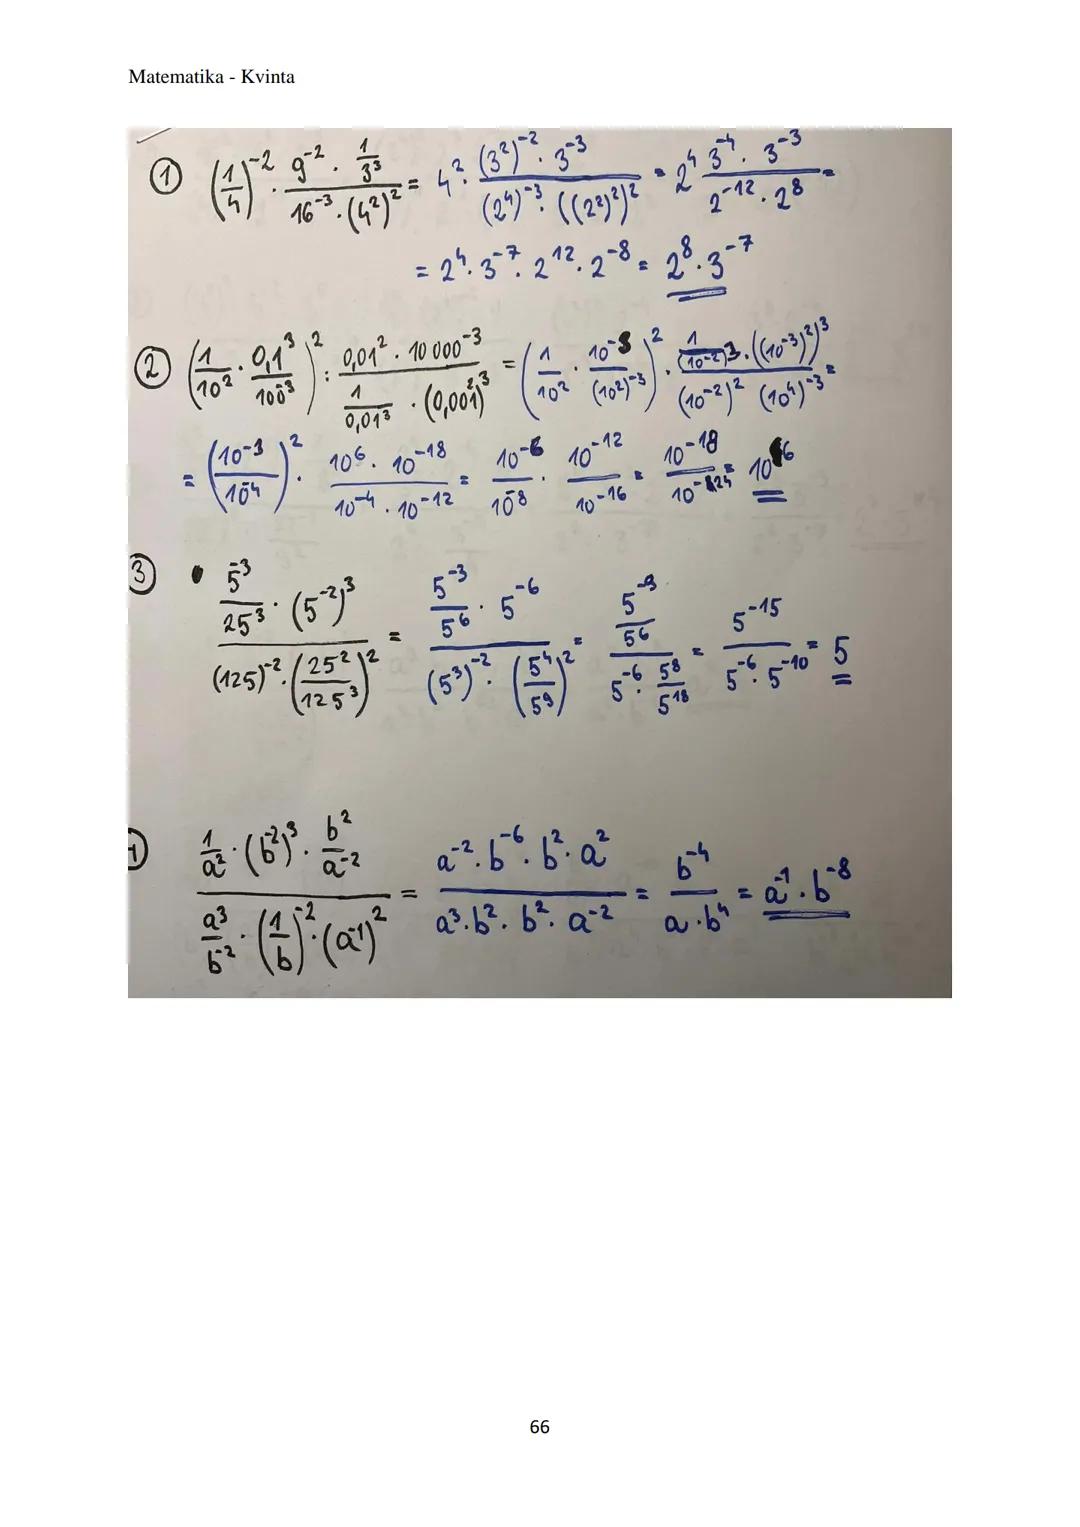 Matematika - Kvinta
① (1/4)⁻² · (9⁻² · 1/3³)/(16⁻³ · (4²)²) = 4² · ((3²)⁻² · 3⁻³)/((2⁴)⁻³ · ((2²)²)²) = 2⁴ (3⁻⁴ · 3⁻³)/(2⁻¹² · 2⁸) =
= 2⁴ · 3⁻⁷ · 2¹² · 2⁻⁸ = 2⁸ · 3⁻⁷
② (1/10² · 0,1³/100⁻³)² : (0,01² · 10 000⁻³)/(1/0,01³ · (0,001²)³) = (1/10² · 10⁻³/(10²)⁻³)² · (1/(10⁻²)³ · ((10⁻³)²)³)/((10⁻²)² (10⁴)⁻³) =
= (10⁻³/10⁻⁴)² · (10⁶ · 10⁻¹⁸)/(10⁻⁴ · 10⁻¹²) = 10⁻⁶/10⁻⁸ · 10⁻¹²/10⁻¹⁶ = 10⁻¹⁸/10⁻²⁴ = 10⁶
③ (5⁻³/25³ · (5⁻²)³)/((125)⁻² · (25²/125³)²) = (5⁻³/5⁶ · 5⁻⁶)/((5³)⁻² · (5⁴/5⁹)²) = (5⁻⁹/5⁶)/(5⁻⁶ · 5⁸/5¹⁸) = 5⁻¹⁵/(5⁻⁶ · 5⁻¹⁰) = 5
(1/a² · (b⁻²)³ · b²/a⁻²)/(a³/b⁻² · (1/b)⁻² · (a⁻¹)²) = (a⁻² · b⁻⁶ · b² · a²)/(a³ · b² · b² · a⁻²) = b⁻⁴/(a · b⁴) = a⁻¹ · b⁻⁸
66